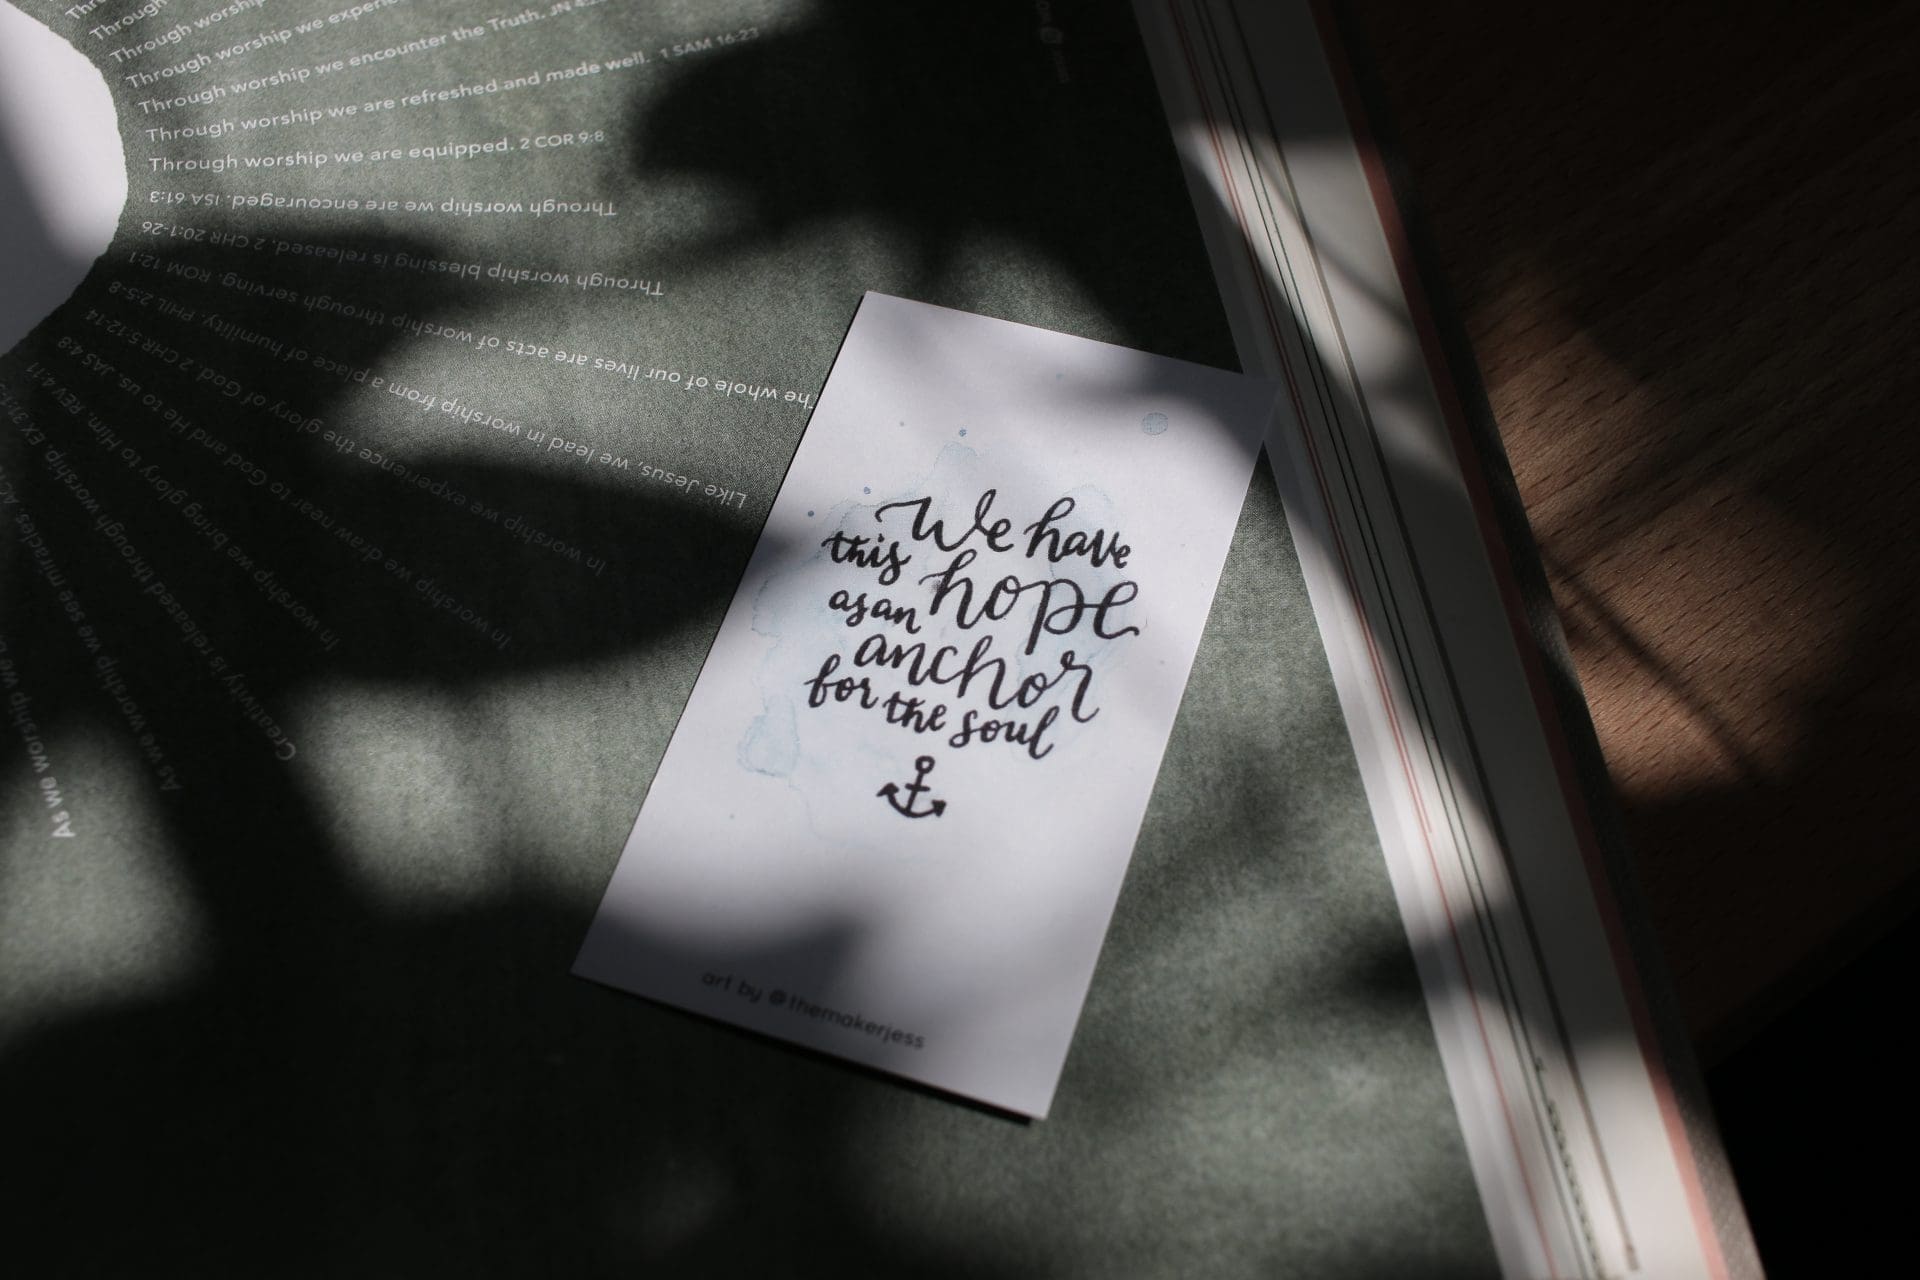 Through worship
Through worship we experie
Through worship we encounter the Truth. JN 4:
Through worship we are refreshed and made well. 1 SAM 16:23
Through worship we are equipped. 2 COR 9:8
Through worship we are encouraged. ISA 61:3
Through worship blessing is released. 2 CHR 20:1-26
The whole of our lives are acts of worship through serving. ROM 12:1
Like Jesus, we lead in worship from a place of humility. PHIL 2:5-8
In worship we experience the glory of God. 2 CHR 5:12-14
In worship we draw near to God and He to us. JAS 4:8
In worship we bring glory to Him. REV 4:11
Creativity is released through worship. EX 31:1-
As we worship we see miracles. ACT
As we worship we
We have
this hope
as an
anchor
for the soul
art by @themakerjess